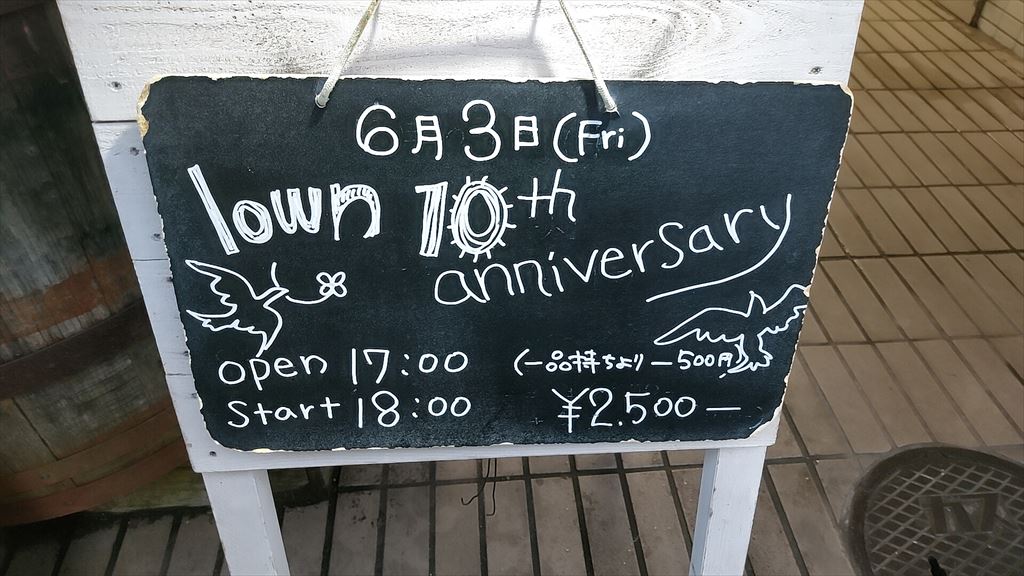 6月3日(Fri)
lown 10th
anniversary
open 17:00
(一品持ちより－500円)
start 18:00
¥2.500－